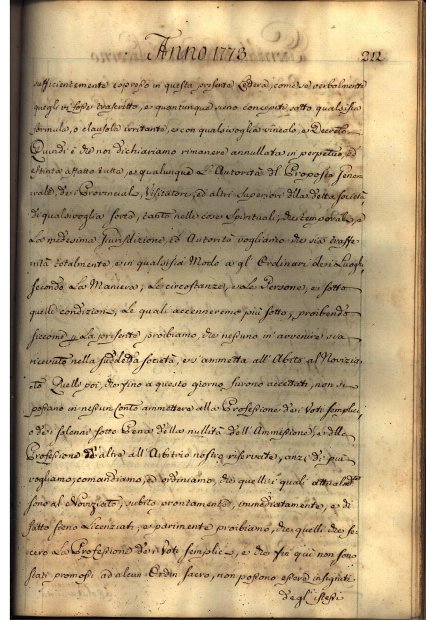 Anno 1773. 212
sufficientemente espresso in questa presente Lettera, come se verbalmente
quegli vi fosse trascritto, e quantunque sieno concepiti sotto qualsisia
formula, o clausola irritante, e con qualsivoglia vincolo, e Decreto.
Quindi è che noi dichiariamo rimanere annullata in perpetuo, ed
estinta affatto tutta, e qualunque L'Autorità del Proposito Gene
rale, dei Provinciali, Visitatori, ed altri Superiori della detta Società
di qualsivoglia sorta, tanto nelle cose Spirituali, che temporali, e
La medesima Jurisdizione, ed Autorità vogliamo che sia trasfe
rita totalmente e in qualsisia Modo a gl' Ordinarj dei Luoghi
secondo La Maniera, Le circostanze, e Le Persone, e sotto
quelle condizioni, Le quali accenneremo più sotto, proibendo
siccome p La presente proibiamo, che nessuno in avvenire sia
ricevuto nella suddetta società, e s'ammetta all' Abito, al Novizia
to Quelle poi, che fino a questo giorno furono accettati, non si
possano in nessun conto ammettere alla Professione dei Voti semplici,
o dei solenni sotto Pena della nullità dell' Ammissione, e della
Professione ed altra all' Arbitrio nostro riservate, anzi di più
vogliamo, comandiamo, ed ordiniamo, che quelli i quali attualmte
sono al Noviziato, subito prontamente, immediatamente, e di
fatto sieno Licenziati, e parimente proibiamo, che quelli che fe-
cero La Professione dei Voti semplici, e che fin qui non sono
stati promossi ad alcun Ordin sacro, non possono essere insigniti
degl' istessi